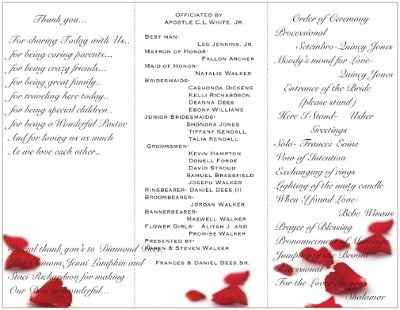 Thank you...
For sharing Today with Us..
for being caring parents...
for being crazy friends...
for being great family...
for traveling here today..
for being special children
for being a Wonderful Pastor
And for loving us as much
As we love each other...
thank you's to Diamond
Jenni Lampkin and
Richardson for making
Our
OFFICIATED BY
APOSTLE C.L. WHITE, JR.
BEST MAN-
LEO JENKINS, JR.
MATRON OF HONOR-
FALLON ARCHER
MAID OF HONOR-
NATALIE WALKER
BRIDESMAIDS-
CASHONDA DICKENS
KELLI RICHARDSON
DEANNA DEES
EBONY WILLIAMS
JUNIOR BRIDESMAIDS-
SHONDRA JONES
TIFFANY KENDALL
TALIA KENDALL
GROOMSMEN-
KEVIN HAMPTON
DONELL FORGE
DAVID STROUD
SAMUEL BRASSFIELD
JOSEPH WALKER
RINGBEARER- DANIEL DEES III
BROOMBEARER-
JORDAN WALKER
BANNERBEARER-
MAXWELL WALKER
FLOWER GIRLS- ALIYAH J. AND
PROMISE WALKER
PRESENTED BY-
& STEVEN WALKER
FRANCES & DANIEL DEES SR.
Order of Ceremony
Processional
Setembro-Quincy Jones
Moody's mood for Love-
Quincy Jones
Entrance of the Bride
(please stand)
Here I Stand- Usher
Greetings
Solo- Frances Goins
Vow of Intention
Exchanging of rings
Lighting of the unity candle
When I found Love-
Bebe Winans
Prayer of Blessing
Pronouncement of
Jumping of the Broom
Recessional
For the Lover
Shalamar